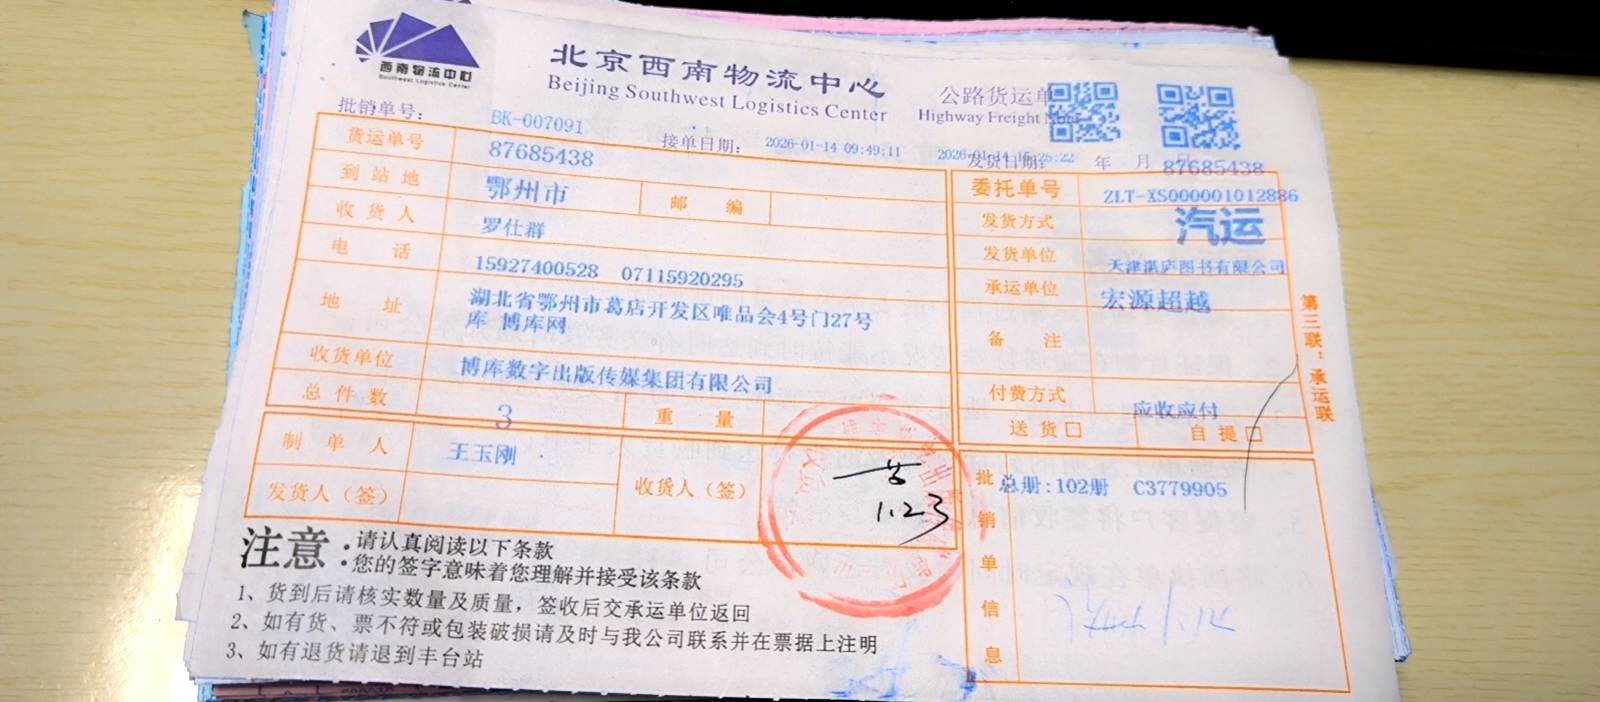 西南物流中心
Southwest Logistics Center
北京西南物流中心
Beijing Southwest Logistics Center
公路货运单
Highway Freight
批销单号: BK-007091
接单日期: 2026-01-14 09:49:11
发货日期: 年 月 日
87685438
货运单号 87685438
到站地 鄂州市 邮编
收货人 罗仕群
电话 15927400528 07115920295
地址 湖北省鄂州市葛店开发区唯品会4号门27号
库 博库网
收货单位 博库数字出版传媒集团有限公司
总件数 3 重量
制单人 王玉刚
发货人（签）
收货人（签）
1.23
委托单号 ZLT-XS000001012886
发货方式 汽运
发货单位 天津湛庐图书有限公司
承运单位 宏源超越
备注
付费方式 应收应付
送货□ 自提□
批销单信息
总册:102册 C3779905
第三联：承运联
注意:请认真阅读以下条款
您的签字意味着您理解并接受该条款
1、货到后请核实数量及质量，签收后交承运单位返回
2、如有货、票不符或包装破损请及时与我公司联系并在票据上注明
3、如有退货请退到丰台站